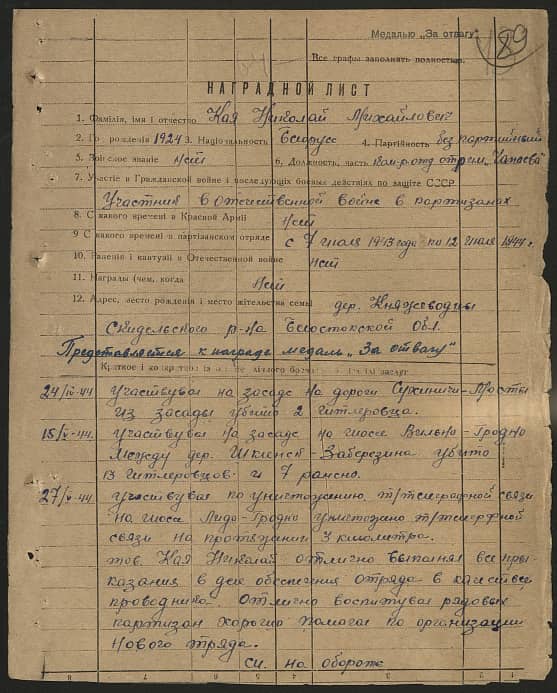 Медалью „За отвагу"
89
Все графы заполнять полностью.
НАГРАДНОЙ ЛИСТ
1. Фамилия, имя и отчество Кая Николай Михайлович
2. Год рождения 1924 3. Национальность Белорусс 4. Партийность безпартийный
5. Воинское звание Нет 6. Должность, часть ком-р отд отр им „Чапаева"
7. Участие в Гражданской войне и последующих боевых действиях по защите СССР
Участник в отечественной войне в партизанах
8. С какого времени в Красной Армии Нет
9 С какого времени в партизанском отряде с 7 июля 1943 года по 12 июля 1944 г.
10. Ранения и контузии в Отечественной войне нет
11. Награды (чем, когда Нет
12. Адрес, место рождения и место жительства семьи дер. Княжеводцы
Скидельского р-на Белостокской Обл.
Представляется к награде медаль „За отвагу"
Краткое и конкретное заслуг
24/IV-44 Участвувал на засаде на дороги Сухиничи-Мосты
из засады убито 2 гитлеровца.
15/V-44. Участвувал на засаде на шоссе Вильно-Гродно
Между дер. Шкленск-Заберезина убито
13 гитлеровцов и 7 ранено.
27/V-44 участвувал по уничтоженю т/телеграфной связи
на шоссе Лидо-Гродно уничтожано т/телегрфной
связи на протяжании 3 километра.
тов. Кая Николай отлично выполнял все при-
казания в деле обеспечения отряда в качестве
проводника. Отлично воспитувал рядовых
партизан хорошо помогал по организации
нового отряда.
см. на обороте
8 7 6 5 4 3 2 1